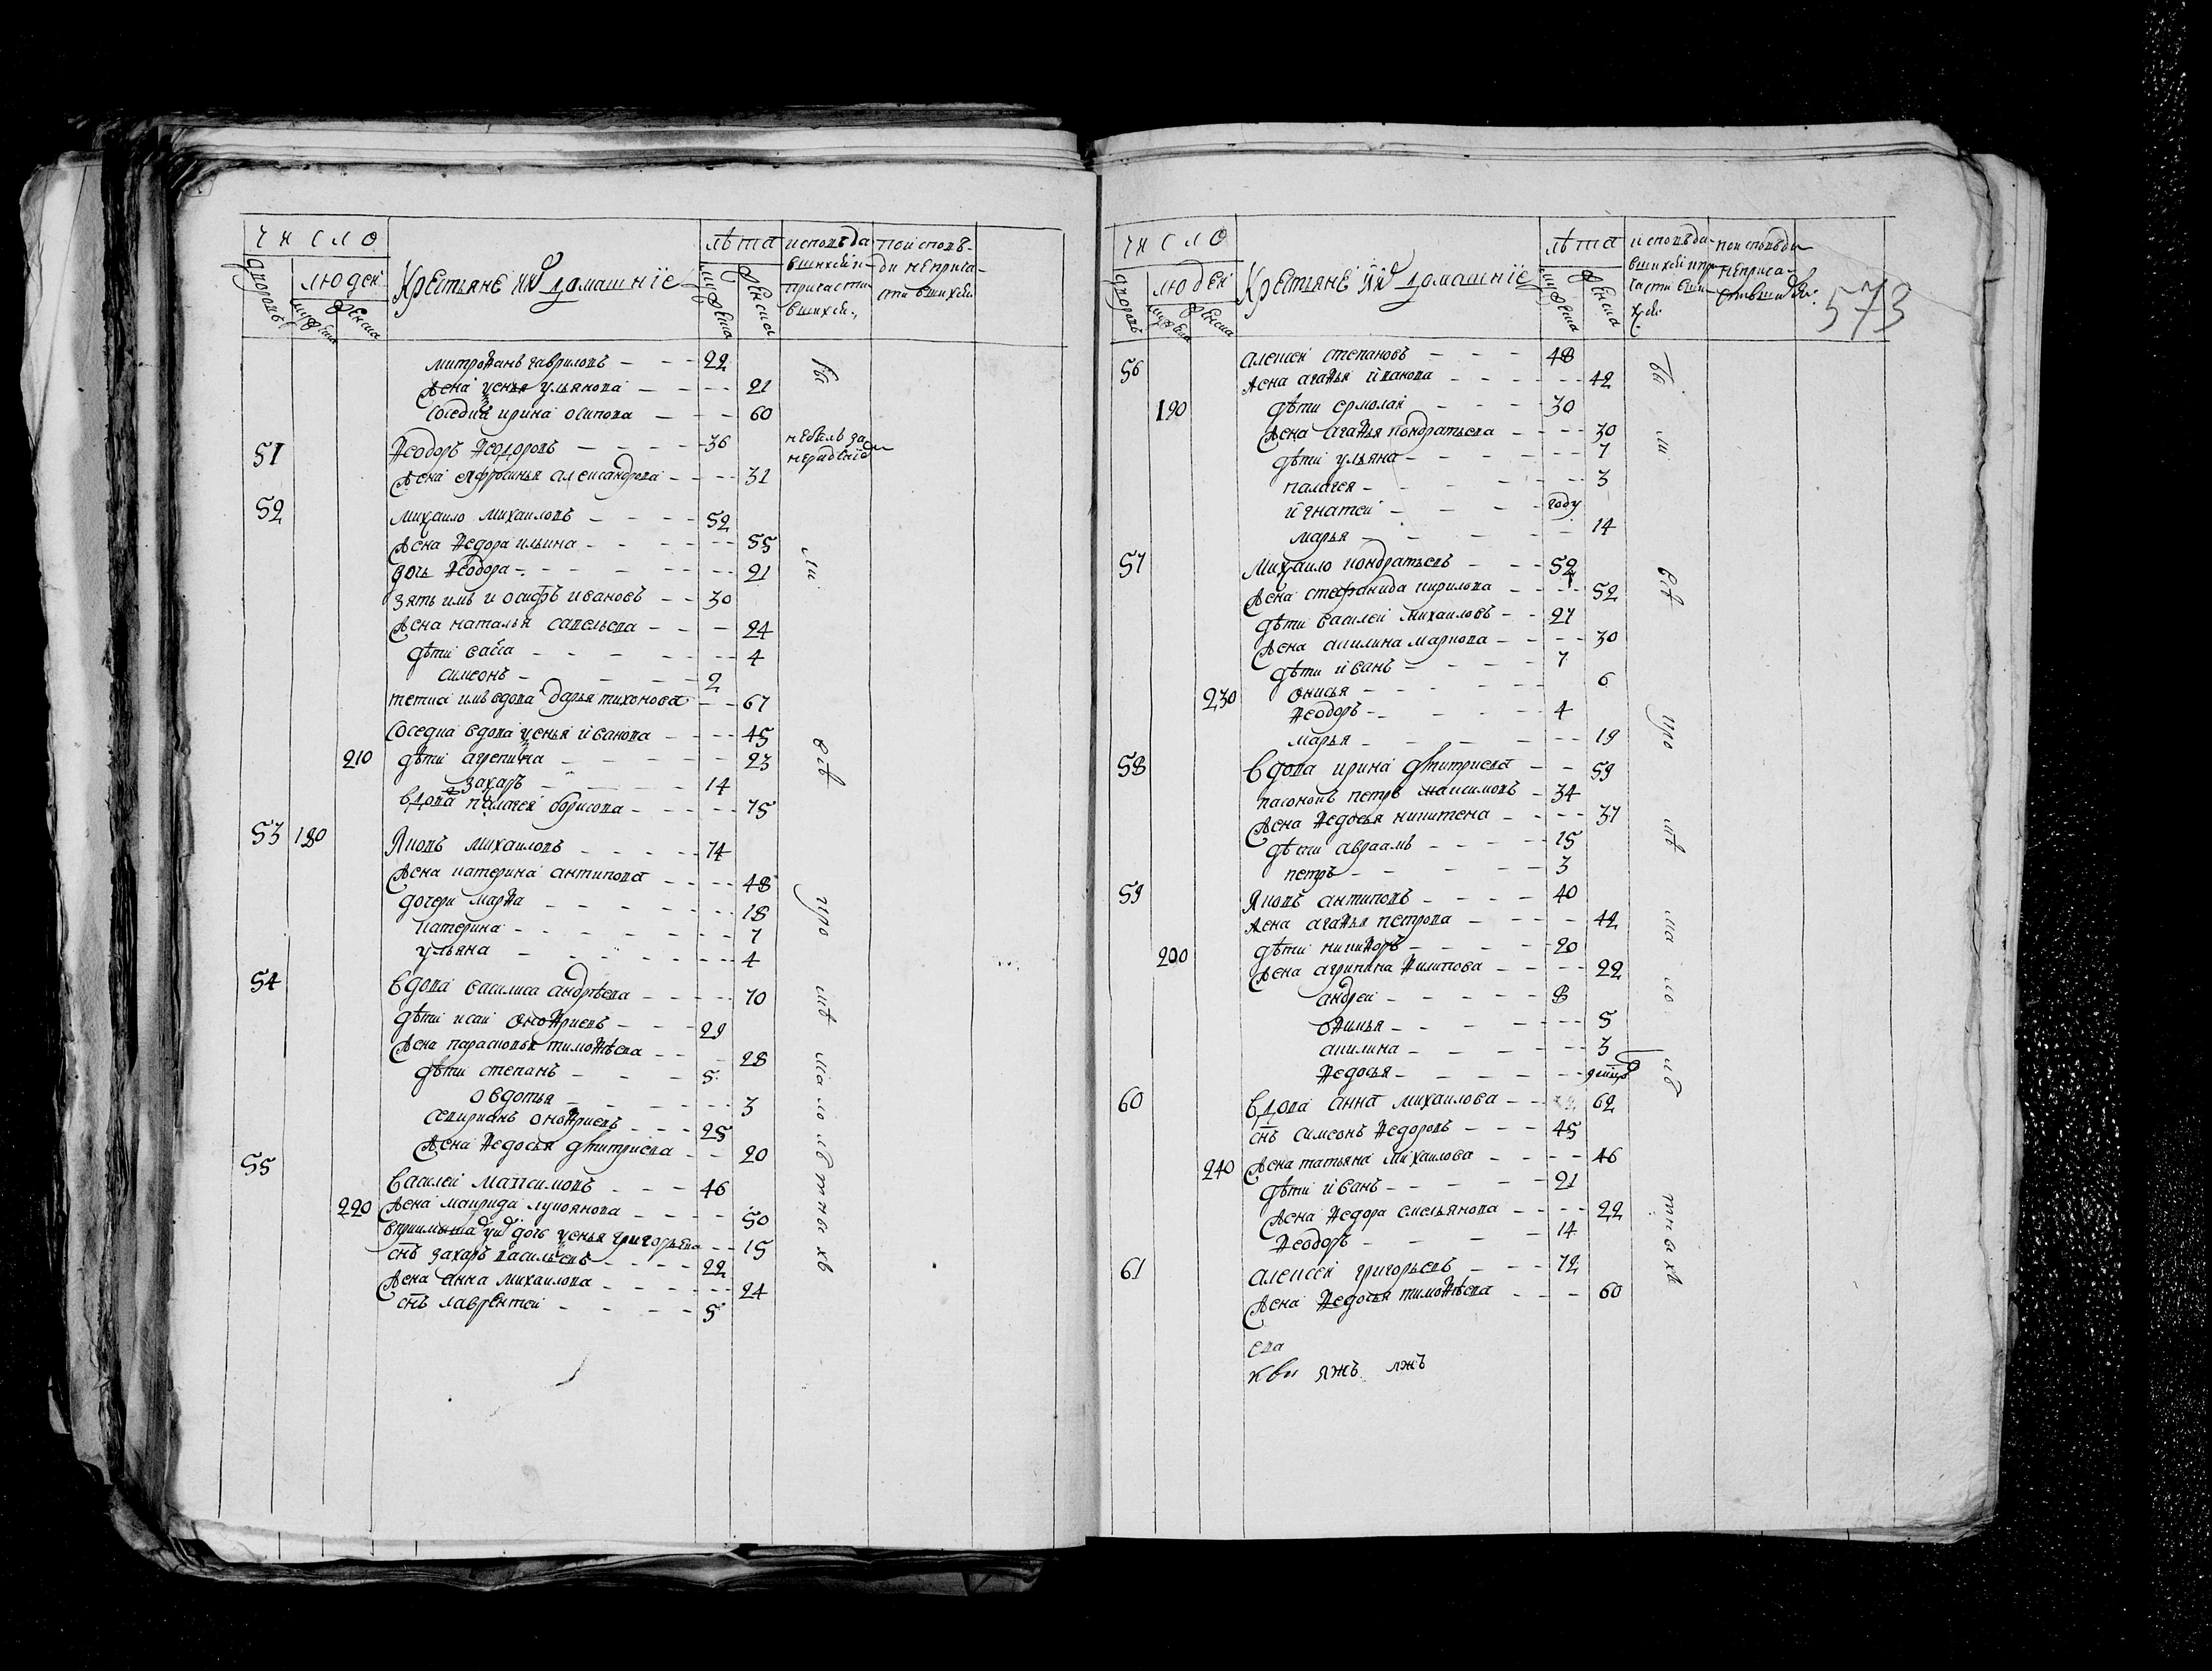 число
дворовъ
людей
мужеска
женска
крестьяне ихъ домашніе
лѣта
мужеска
женска
исповеда-
вшихся и
причасти-
вшихся
по исповѣ-
ди не прича-
стившихся
митрофанъ гавриловъ 22
жена ксенья ульянова 21
соседка ирина осипова 60
51 Феодоръ Феодоровъ 36
не былъ за
нерадениемъ
жена ефросинья александрова 31
52 михаило михаиловъ 52
жена Федора ильина 55
дочь Феодора 21
зять имъ иосифъ ивановъ 30
жена наталья савельева 24
дѣти васса 4
симеонъ 2
тетка имъ вдова дарья тихонова 67
соседка вдова ксенья иванова 45
210 дѣти агрепина 23
захаръ 14
вдова пелагея борисова 75
53 180 яковъ михаиловъ 74
жена катерина антипова 48
дочери марфа 18
катерина 7
ульяна 4
54 вдова василиса андрѣева 70
дѣти исаи онофриевъ 29
жена парасковья тимофѣева 28
дѣти степанъ 5
овдотья 3
севирианъ онофриевъ 25
жена Федосья дмитриева 20
55 василеи максимовъ 46
220 жена маврида лукоянова 50
дочь ксенья григорьева 15
снъ захаръ васильевъ 22
жена анна михаилова 24
снъ лаврентеи 5
573
число
дворовъ
людей
мужеска
женска
крестьяне ихъ домашніе
лѣта
мужеска
женска
исповѣда-
вшихся и при-
части вши-
хся
по исповѣди
не прича-
стившихся
56 алексеи степановъ 48
жена агафья иванова 42
190 дѣти ермолаи 30
жена агафья кондратьева 30
дѣти ульяна 7
палагея 3
игнатеи году
марья 14
57 михаило кондратьевъ 52
жена стефанида кирилова 52
дѣти василеи михаиловъ 27
жена акилина маркова 30
дѣти иванъ 7
230 онисья 6
Феодоръ 4
марья 19
58 вдова ирина дмитриева 59
пасонокъ петръ максимовъ 34
жена Федосья никитена 37
дѣти авраамъ 15
петръ 3
59 яковъ антиповъ 40
жена агафья петрова 42
200 дѣти никифоръ 20
жена агрипина Филипова 22
андреи 8
офимья 5
акилина 3
Федосья
60 вдова анна михаилова 62
снъ симеонъ Федоровъ 45
240 жена татьяна михаилова 46
дѣти иванъ 21
жена Федора емельянова 22
Феодоръ 14
61 алексеи григорьевъ 72
жена Федосья тимофѣева 60